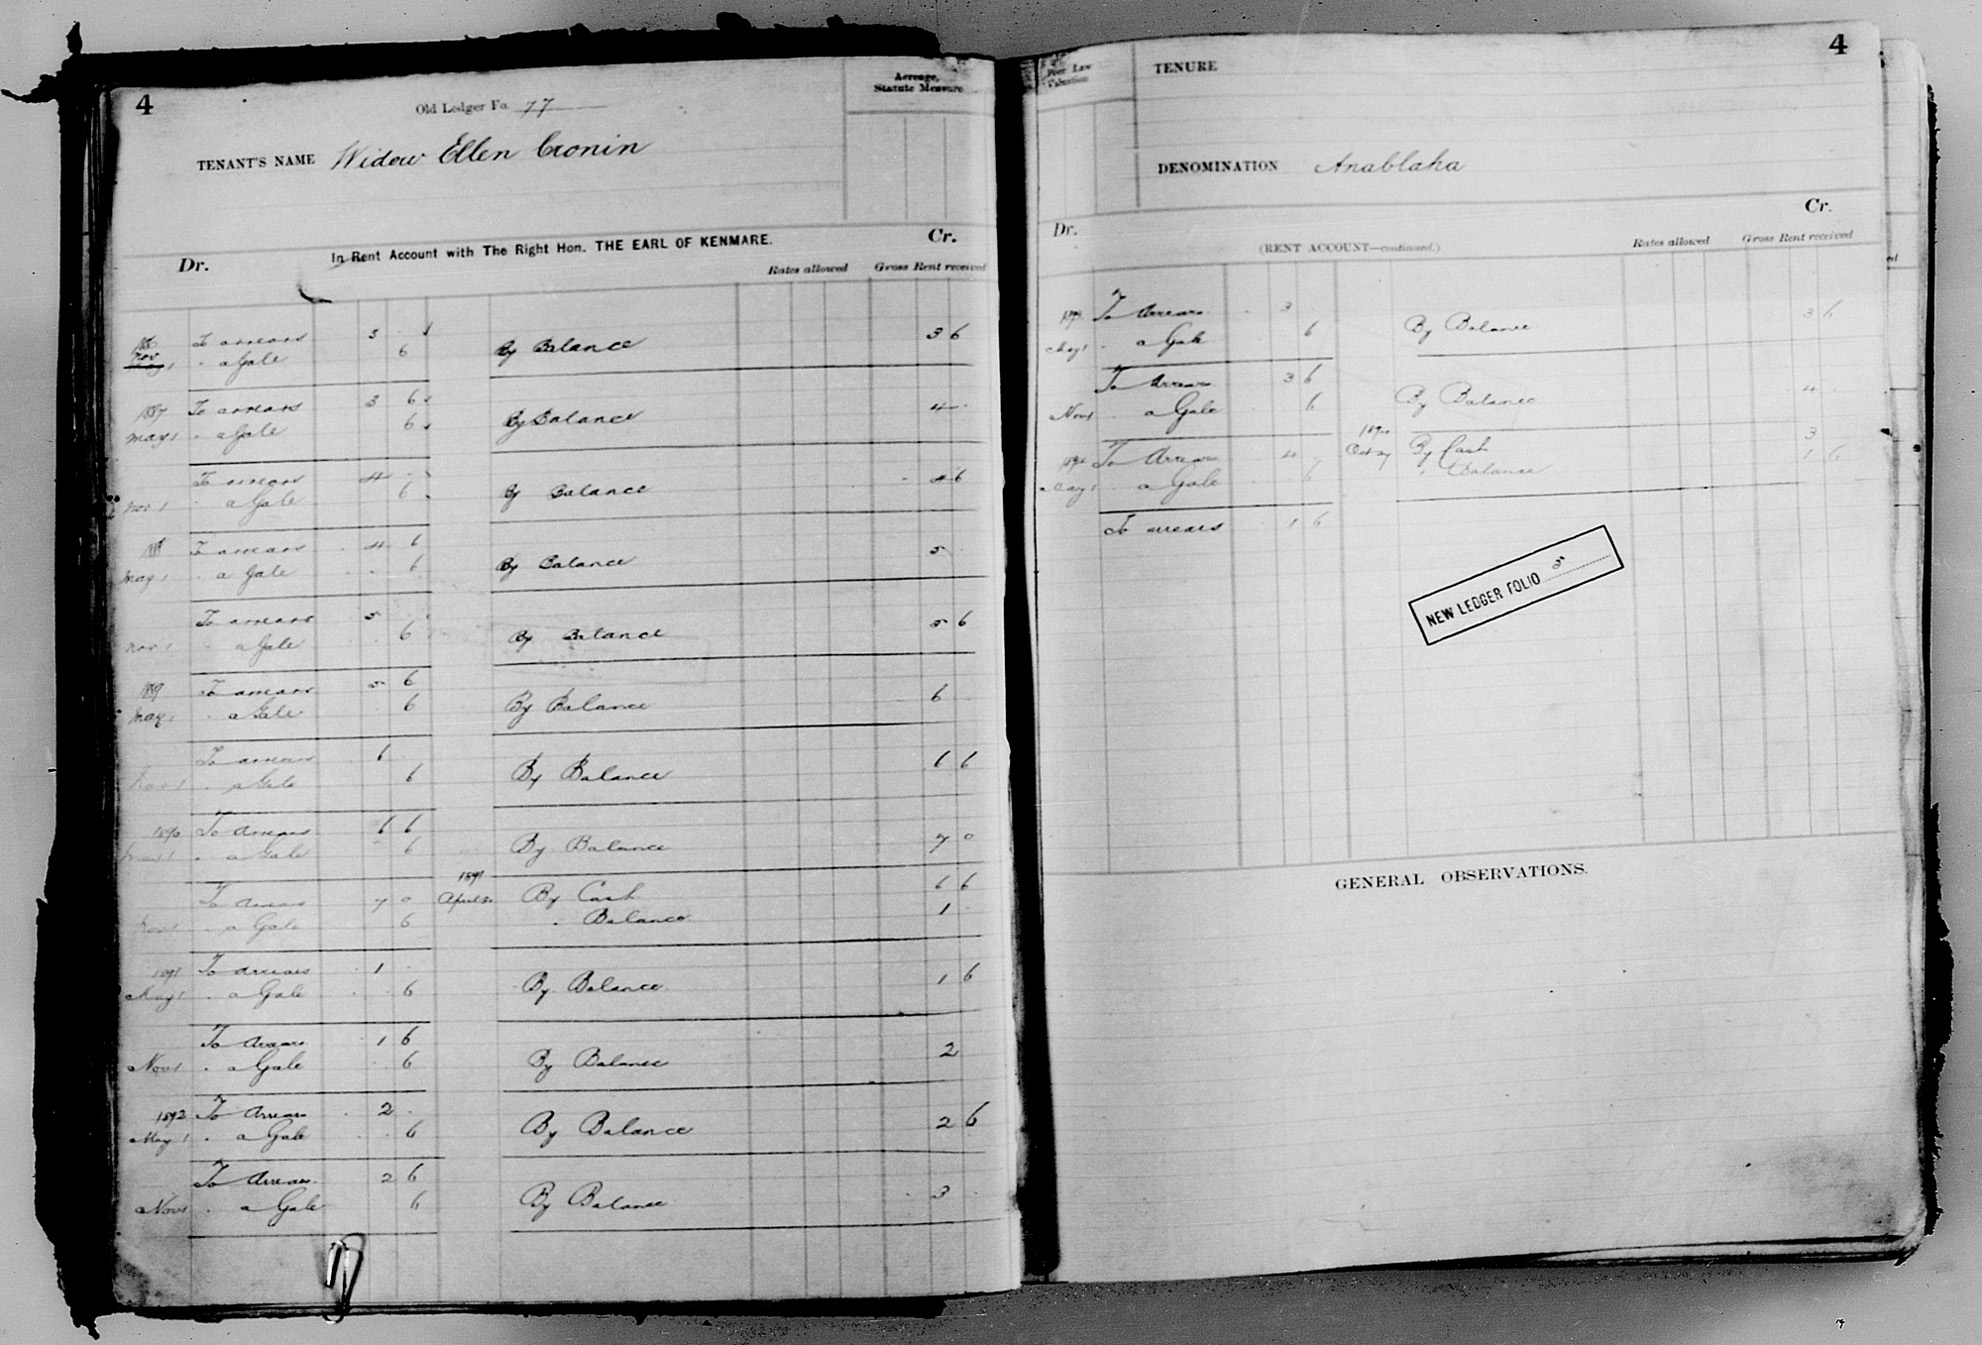 4
Old Ledger Fo. 77
Acreage,
Statute Measure
TENANT'S NAME Widow Ellen Cronin
In Rent Account with The Right Hon. THE EARL OF KENMARE.
Dr. Cr.
Rates allowed Gross Rent received
To arrears 3
Nov 1 " a Gale 6 By Balance 3 6
1887 To arrears 3 6
May 1 " a Gale 6 By Balance 4
To arrears 4
Nov 1 " a Gale 6 By Balance 4 6
1888 To arrears 4 6
May 1 " a Gale 6 By Balance 5
To arrears 5
Nov 1 " a Gale 6 By Balance 5 6
1889 To arrears 5 6
May 1 " a Gale 6 By Balance 6
To arrears 6
Nov 1 " a Gale 6 By Balance 6 6
1890 To arrears 6 6
May 1 " a Gale 6 By Balance 7 0
To arrears 7 0 1891 April By Cash 6 6
Nov 1 " a Gale 6 " Balance 1
1891 To arrears 1
May 1 " a Gale 6 By Balance 1 6
To Arrears 1 6
Nov 1 " a Gale 6 By Balance 2
1892 To Arrears 2
May 1 " a Gale 6 By Balance 2 6
To Arrears 2 6
Nov 1 " a Gale 6 By Balance 3
4
Poor Law
Valuation
TENURE
DENOMINATION Anablaha
Dr. Cr.
(RENT ACCOUNT—continued.)
Rates allowed Gross Rent received
To Arrears 3
May 1 " a Gale 6 By Balance 3 6
To Arrears 3 6
Nov 1 " a Gale 6 By Balance 4
To Arrears 4 Oct 27 By Cash 3
May 1 a Gale 6 " Balance 1 6
To arrears 1 6
NEW LEDGER FOLIO 5
GENERAL OBSERVATIONS.